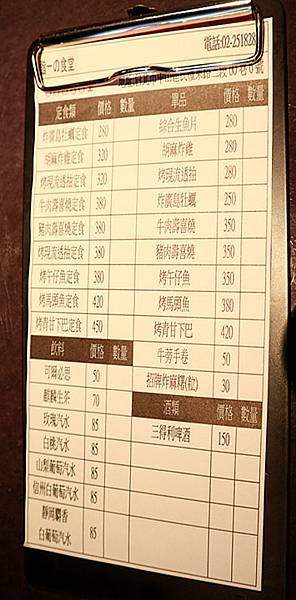 一の食堂
電話:02-251828
定食類 價格 數量 單品 價格 數量
炸廣島牡蠣定食 280 綜合生魚片 280
胡麻炸雞定食 320 胡麻炸雞 280
烤現流透抽定食 320 烤現流透抽 280
牛肉壽喜燒定食 380 炸廣島牡蠣 250
豬肉壽喜燒定食 380 牛肉壽喜燒 350
烤現流透抽定食 380 豬肉壽喜燒 350
烤午仔魚定食 380 烤午仔魚 350
烤馬頭魚定食 420 烤馬頭魚 380
烤青甘下巴定食 450 烤青甘下巴 420
飲料 價格 數量 牛蒡手卷 50
可爾必思 50 招牌炸麻糬(粒) 30
麒麟生茶 70 酒類 價格 數量
玫瑰汽水 85 三得利啤酒 150
白桃汽水 85
山梨葡萄汽水 85
信州白葡萄汽水 85
靜岡麝香
白葡萄汽水 85